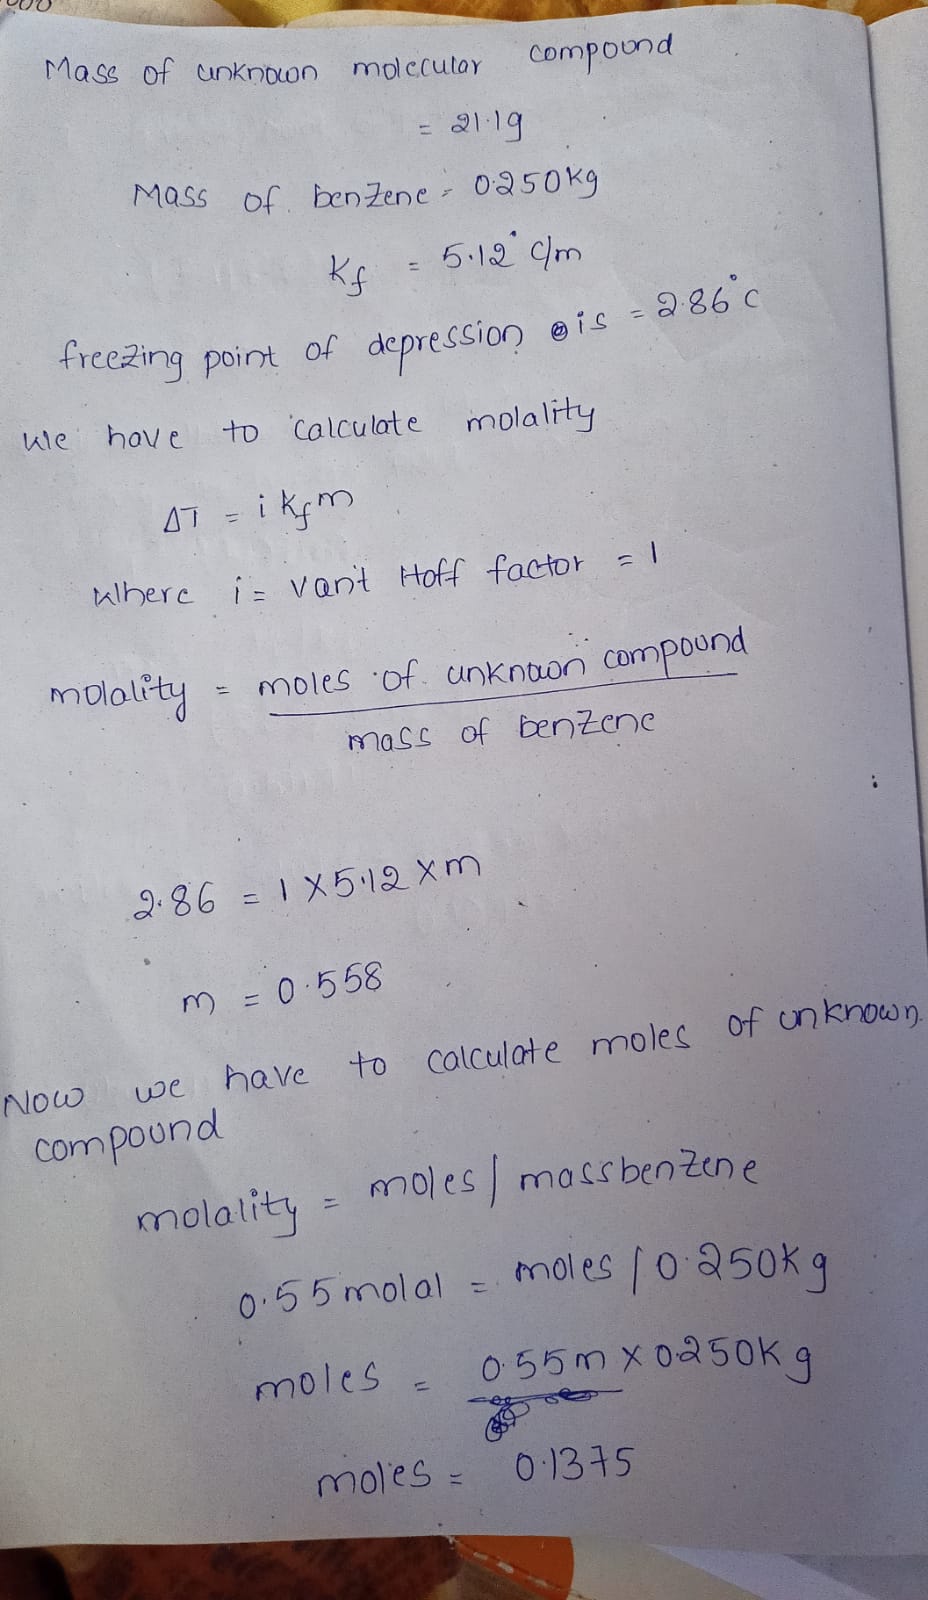 Mass of unknown molecular compound
= 21.1g
Mass of benzene = 0.250kg
Kf = 5.12° c/m
freezing point of depression is = 2.86°c
We have to calculate molality
ΔT = i kfm
Where i = van't Hoff factor = 1
molality = moles of unknown compound
mass of benzene
2.86 = 1 X 5.12 x m
m = 0.558
Now we have to calculate moles of unknown.
compound
molality = moles / mass benzene
0.55 molal = moles / 0.250kg
moles = 0.55m x 0.250kg
moles = 0.1375